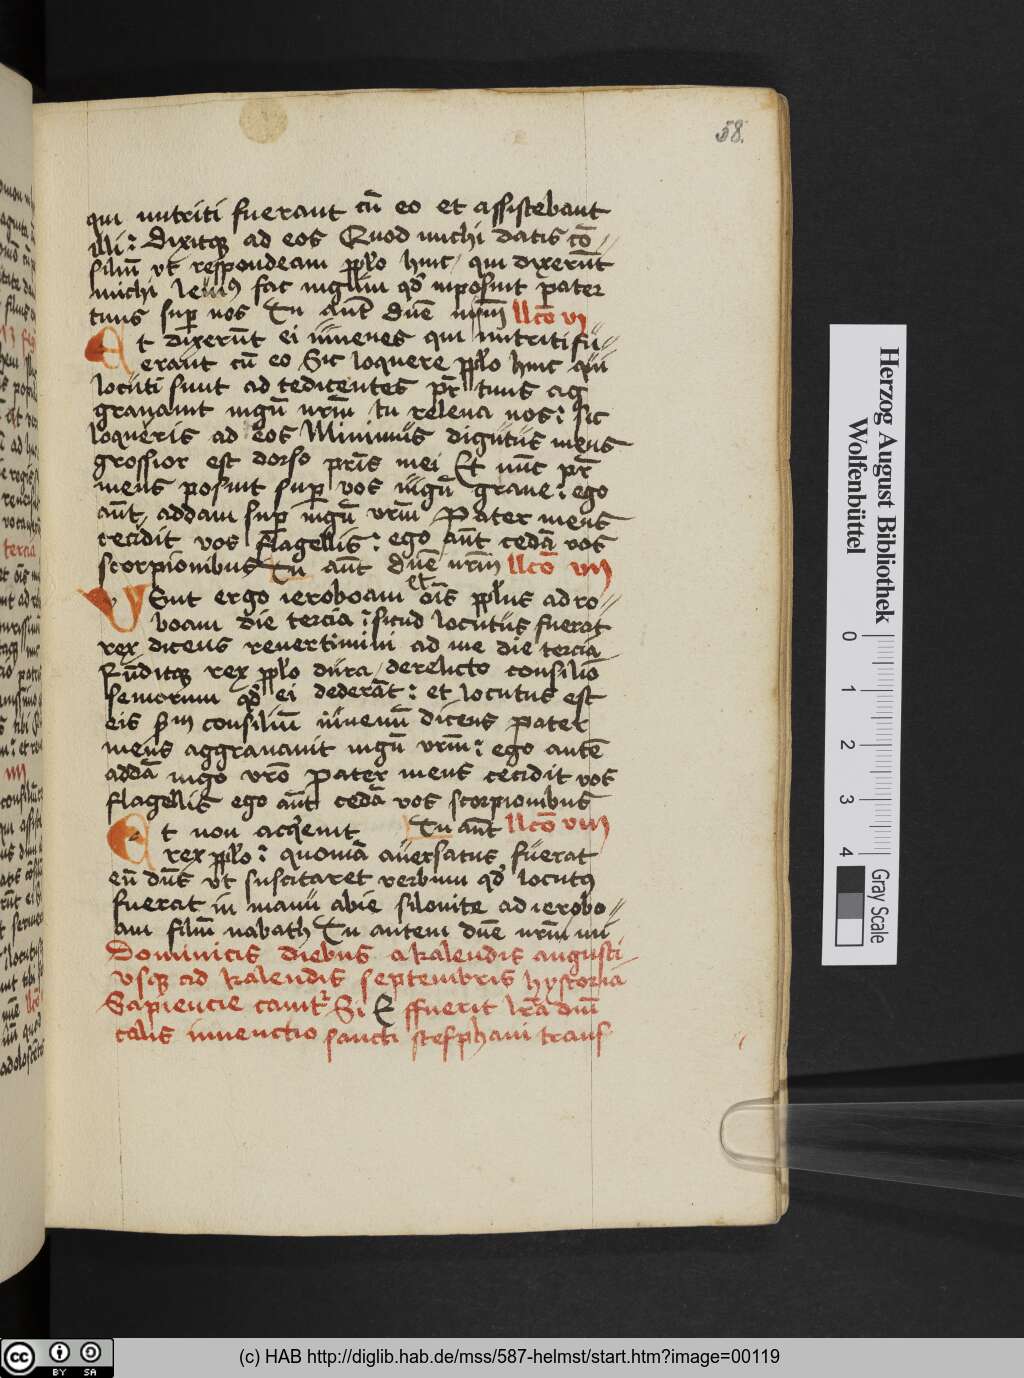 58.
qui nutriti fuerant cū eo et assistebant
illi: Dixitqꝫ ad eos Quod michi datis cō⸗
siliū vt respondeam pplo huic qui dixerūt
michi leuiꝰ fac iugum qd inposuit pater
tuus sup nos Tu aūt dn̄e llcō vi
Et dixerūt ei iuuenes qui nutriti fu⸗
erant cū eo Sic loquere pplo huic qui
locuti sunt ad te dicentes pr̄ tuus ag
grauauit iugū nr̄m tu releua nos: sic
loqueris ad eos Minimus digitus meus
grossior est dorso pr̄is mei Et nūc pr̄
meus posuit sup vos iugū graue: ego
aūt addam sup iugū vr̄m Pater meus
cecidit vos flagellis: ego aūt cedā vos
scorpionibus Tu aūt dn̄e nr̄m llcō vii
VEnit ergo ieroboam et ōis pplus ad ro⸗
boam die tercia: sicud locutus fuerat
rex dicens reuertimini ad me die tercia
Rn̄ditqꝫ rex pplo dura derelicto consilio
seniorum qd ei dederāt: et locutus est
eis scdm consiliū iuuenū dicens pater
meus aggrauauit iugū vr̄m: ego autē
addā iugo vr̄o Pater meus cecidit vos
flagellis ego aūt cedā vos scorpionibus
Et non acqeuit Tu aūt llcō viii
rex pplo: quoniā auersatus fuerat
eū dn̄s vt suscitaret verbum qd locutꝰ
fuerat in manu abie silonite ad ierobo⸗
am filiū nabath Tu autem dn̄e
Dominicis diebus a kalendis augusti
vsqꝫ ad kalendis septembris hystoria
Sapiencie cantr̄ Si E ffuerit lr̄a dni
calis inuenctio sancti stefphani transf
Herzog August Bibliothek
Wolfenbüttel
0 1 2 3 4
Gray Scale
cc BY SA
(c) HAB http://diglib.hab.de/mss/587-helmst/start.htm?image=00119